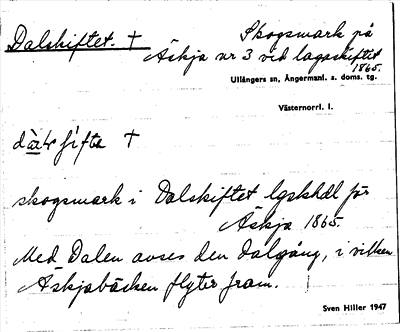 Dalskiftet. †
Skogsmark på
Äskja nr 3 vid lagaskiftet
1865.
Ullångers sn, Ångermanl. s. doms. tg.
Västernorrl. l.
skogsmark i Dalskiftet lgskhdl för
Äskja 1865.
Med Dalen avses den dalgång, i vilken
Äskjabäcken flyter fram.
Sven Hiller 1947